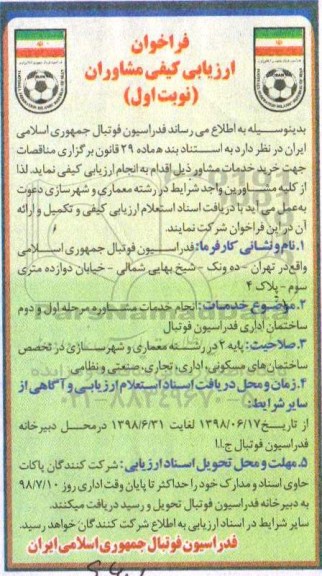 فراخوان
ارزیابی کیفی مشاوران
(نوبت اول)
بدینوسیله به اطلاع می رساند فدراسیون فوتبال جمهوری اسلامی
ایران در نظر دارد به استناد بند ه ماده ۲۹ قانون برگزاری مناقصات
جهت خرید خدمات مشاور ذیل اقدام به انجام ارزیابی کیفی نماید. لذا
از کلیه مشاورین واجد شرایط در رشته معماری و شهرسازی دعوت
به عمل می آید با دریافت اسناد استعلام ارزیابی کیفی و تکمیل و ارائه
آن در این فراخوان شرکت نمایند.
۱.نام و نشانی کارفرما: فدراسیون فوتبال جمهوری اسلامی
واقع در تهران - ده ونک - شیخ بهایی شمالی - خیابان دوازده متری
سوم - پلاک ۴
۲.موضوع خدمات: انجام خدمات مشاوره مرحله اول و دوم
ساختمان اداری فدراسیون فوتبال
۳.صلاحیت: پایه ۲ در رشته معماری و شهرسازی در تخصص
ساختمان های مسکونی، اداری، تجاری، صنعتی و نظامی
۴.زمان و محل دریافت اسناد استعلام ارزیابی و آگاهی از
سایر شرایط:
از تاریخ ۱۳۹۸/۰۶/۱۷ لغایت ۱۳۹۸/۶/۳۱ در محل دبیرخانه
فدراسیون فوتبال ج.ا.ا
۵.مهلت و محل تحویل اسناد ارزیابی: شرکت کنندگان پاکات
حاوی اسناد و مدارک خود را حداکثر تا پایان وقت اداری روز ۹۸/۷/۱۰
به دبیرخانه فدراسیون فوتبال تحویل و رسید دریافت میکنند.
سایر شرایط در اسناد ارزیابی به اطلاع شرکت کنندگان خواهد رسید.
فدراسیون فوتبال جمهوری اسلامی ایران